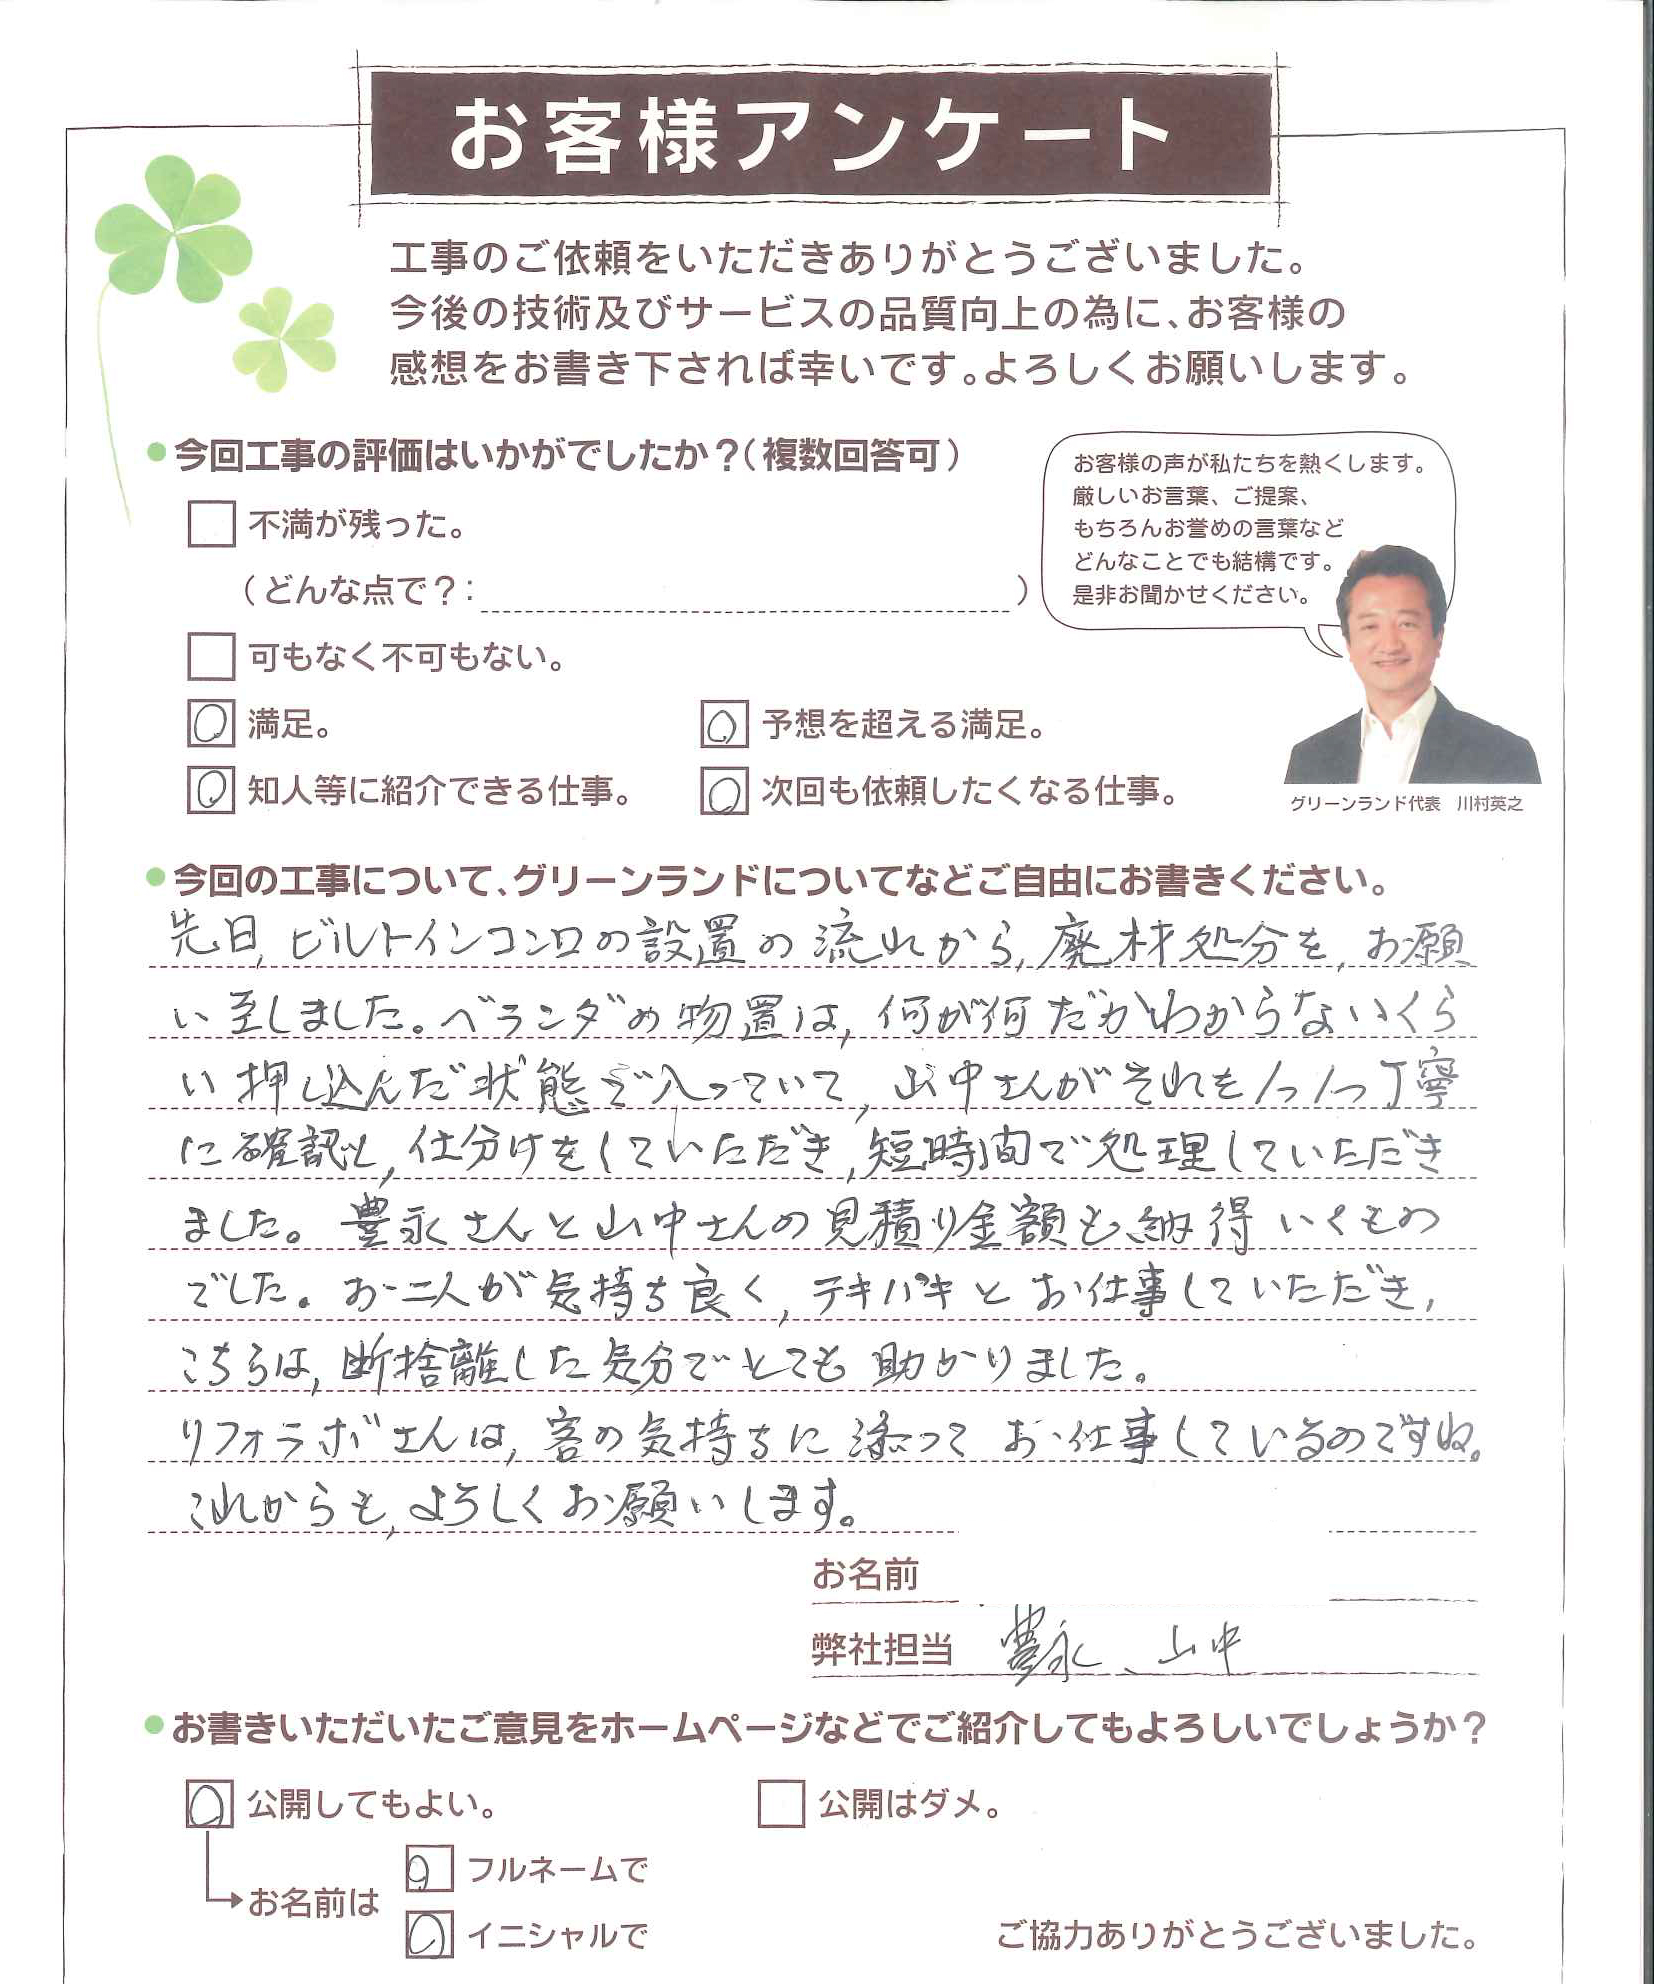 お客様アンケート
工事のご依頼をいただきありがとうございました。
今後の技術及びサービスの品質向上の為に、お客様の
感想をお書き下されば幸いです。よろしくお願いします。
今回工事の評価はいかがでしたか?(複数回答可)
不満が残った。
(どんな点で?: )
可もなく不可もない。
○ 満足。
○ 予想を超える満足。
○ 知人等に紹介できる仕事。
○ 次回も依頼したくなる仕事。
お客様の声が私たちを熱くします。
厳しいお言葉、ご提案、
もちろんお誉めの言葉など
どんなことでも結構です。
是非お聞かせください。
グリーンランド代表 川村英之
今回の工事について、グリーンランドについてなどご自由にお書きください。
先日,ビルトインコンロの設置の流れから,廃材処分を,お願
い至しました。ベランダの物置は,何が何だかわからないくら
い押し込んだ状態で入っていて,山中さんがそれを1つ1つ丁寧
に確認し,仕分けをしていただき,短時間で処理していただき
ました。豊永さんと山中さんの見積り金額も納得いくもの
でした。お二人が気持ち良く,テキパキとお仕事していただき,
こちらは,断捨離した気分でとても助かりました。
リフォラボさんは,客の気持ちに添ってお仕事しているのですね。
これからも,よろしくお願いします。
お名前
弊社担当 豊永、山中
お書きいただいたご意見をホームページなどでご紹介してもよろしいでしょうか?
○ 公開してもよい。
公開はダメ。
お名前は
○ フルネームで
○ イニシャルで
ご協力ありがとうございました。